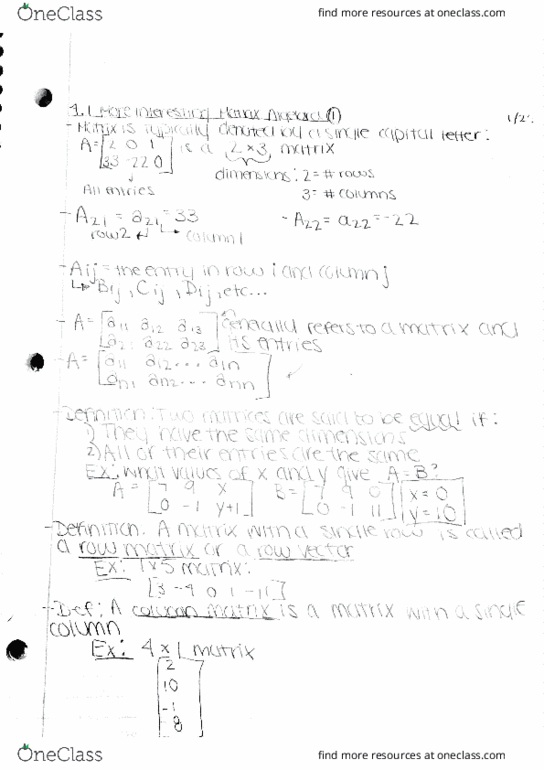 OneClass
find more resources at oneclass.com
1.1 More Interesting Matrix Algebra ①
1/2
- Matrix is typically denoted by a single capital letter:
A = [2 0 1 is a 2 × 3 matrix
33 -22 0]
dimensions: 2 = # rows
All entries 3 = # columns
- A21 = a21 = 33 - A22 = a22 = -22
row 2 column 1
- Aij = the entry in row i and column j
↳ Bij, Cij, Dij, etc...
- A = [a11 a12 a13 generally refers to a matrix and
a21 a22 a23] its entries
- A = [a11 a12 ... a1n
an1 an2 ... ann]
- Definition: Two matrices are said to be equal if:
1) They have the same dimensions
2) All of their entries are the same
Ex: what values of x and y give A = B?
A = [7 9 x B = [7 9 0 x = 0
0 -1 y+1] 0 -1 11] y = 10
- Definition: A matrix with a single row is called
a row matrix or a row vector
Ex: 1x5 matrix:
[3 -4 0 1 -11]
- Def: A column matrix is a matrix with a single
column
Ex: 4 x 1 matrix
[2
10
-1
8]
OneClass
find more resources at oneclass.com